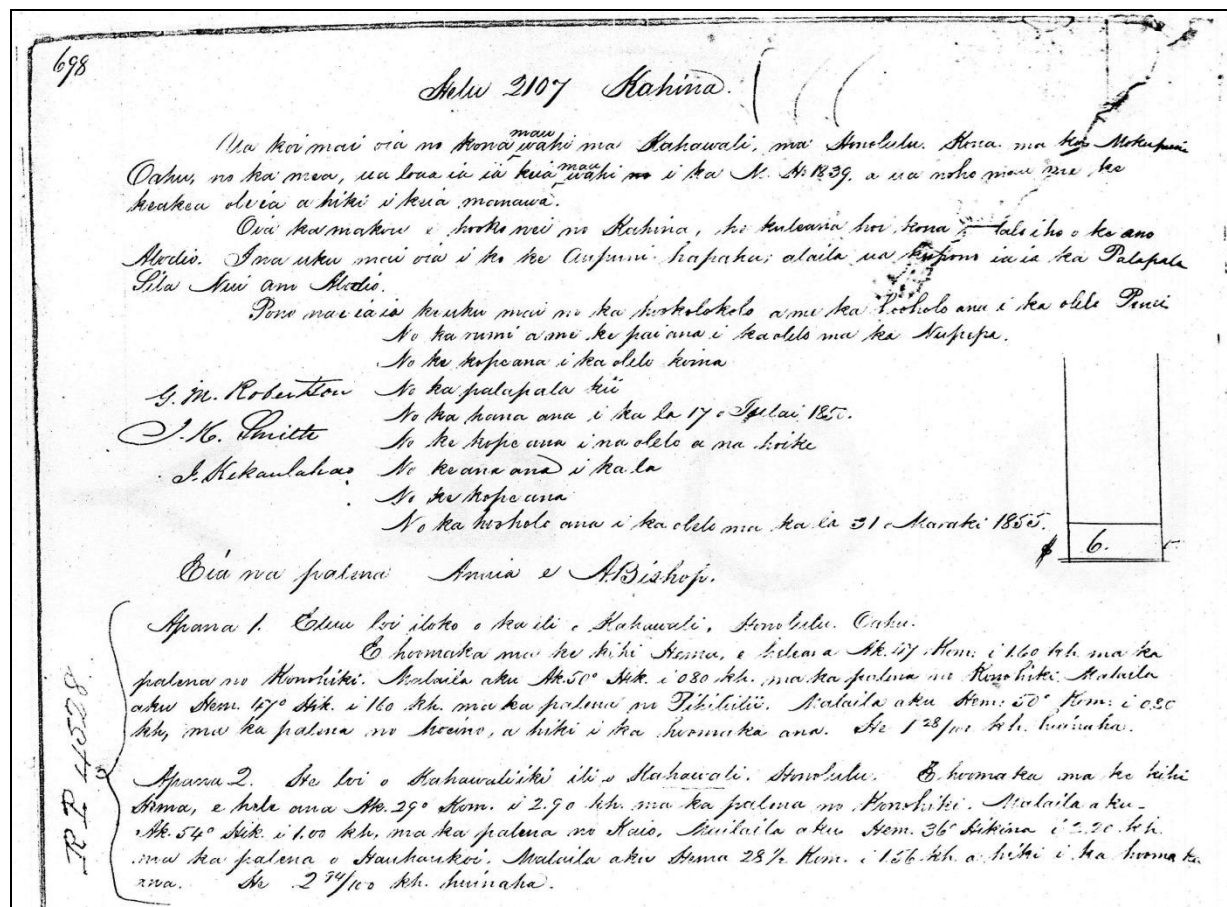 698
Helu 2107 Kahina.
Ua koi mai oia no kona mau wahi ma Kahawali, ma Honolulu. Kona. ma ka Mokupuni
Oahu, no ka mea, ua loaa ia ia keia mau wahi i ka M. H. 1839. a ua noho mau me ke
keakea ole ia a hiki i keia manawa.
Oia ka makou e hooko nei no Kahina, he kuleana hoi kona malalo iho o ke ano
Alodio. Ina uku mai oia i ko ke Aupuni hapaha; alaila ua kupono ia ia ka Palapala
Sila Nui ano Alodio.
Pono nae ia ia ke uku mai no ka hookolokolo a me ka hooholo ana i ka olelo Penei
No ka rumi a me ke pai ana i ka olelo ma ka Nupepa.
No ke kope ana i ka olelo koina
G. M. Robertson No ka palapala kii
No ka hana ana i ka la 17 o Iulai 185
J. H. Smith No ke kope ana i na olelo a na hoike
J. Kekaulahao No ke ana ana i ka la
No ke kope ana
No ka hooholo ana i ka olelo ma ka la 31 o Maraki 1855.
$ 6.
Eia na palena Anaia e A Bishop.
Apana 1. Elua loi iloko o ka ili o Kahawali, Honolulu. Oahu.
E hoomaka ma ke kihi Hema, e hele ana Ak. 47 Kom: i 1.60 kh. ma ka
palena no Konohiki. Malaila aku Ak. 50° Hik. i 0.80 kh. ma ka palena no Konohiki. Malaila
aku Hem. 47° Hik. i 1.60 kh. ma ka palena no Malaila aku Hem: 50° Kom: i 0.80
kh, ma ka palena no a hiki i ka hoomaka ana. He 1 28/100 kh. huinaha.
Apana 2. He loi o Kahawaliiki ili o Kahawali. Honolulu. E hoomaka ma ke kihi
Hema, e hele ana Ak. 29° Kom. i 2.90 kh. ma ka palena no Konohiki. Malaila aku
Ak. 54° Hik. i 1.00 kh, ma ka palena no Kaio, Malaila aku Hem. 36° Hikina i 2.20 kh.
ma ka palena o Hauhaukoi. Malaila aku Hema 28½ Kom. i 1.56 kh. a hiki i ka hoomaka
ana. He 2 94/100 kh. huinaha.
R P 4528.